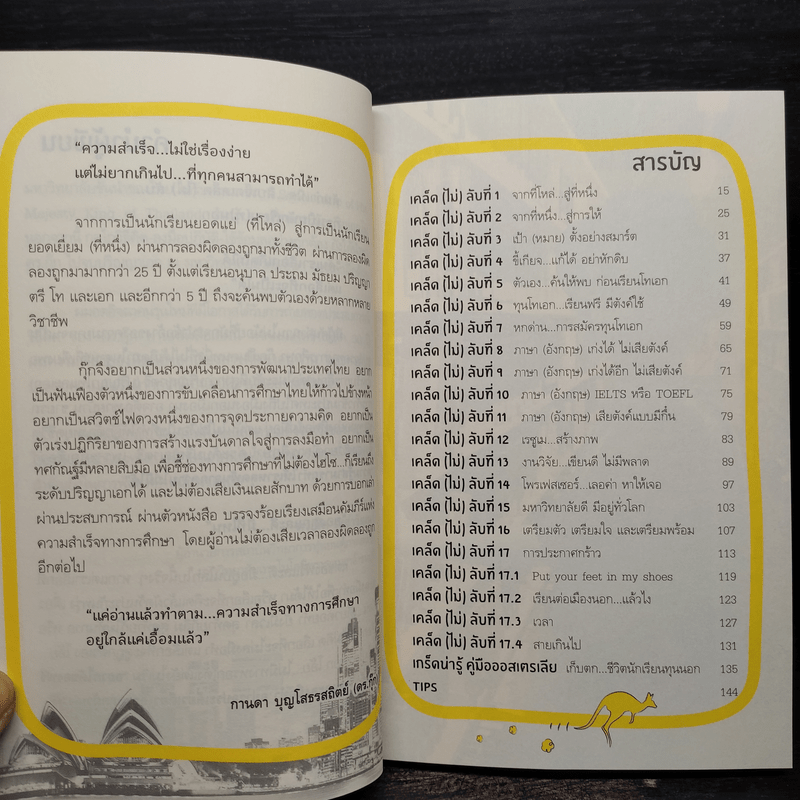 “ความสำเร็จ...ไม่ใช่เรื่องง่าย
แต่ไม่ยากเกินไป...ที่ทุกคนสามารถทำได้”
จากการเป็นนักเรียนยอดแย่ (ที่โหล่) สู่การเป็นนักเรียน
ยอดเยี่ยม (ที่หนึ่ง) ผ่านการลองผิดลองถูกมาทั้งชีวิต ผ่านการลองผิด
ลองถูกมามากกว่า 25 ปี ตั้งแต่เรียนอนุบาล ประถม มัธยม ปริญญา
ตรี โท และเอก และอีกกว่า 5 ปี ถึงจะค้นพบตัวเองด้วยหลากหลาย
วิชาชีพ
กุ๊กจึงอยากเป็นส่วนหนึ่งของการพัฒนาประเทศไทย อยาก
เป็นฟันเฟืองตัวหนึ่งของการขับเคลื่อนการศึกษาไทยให้ก้าวไปข้างหน้า
อยากเป็นสวิตช์ไฟดวงหนึ่งของการจุดประกายความคิด อยากเป็น
ตัวเร่งปฏิกิริยาของการสร้างแรงบันดาลใจสู่การลงมือทำ อยากเป็น
ทศกัณฐ์มีหลายสิบมือ เพื่อชี้ช่องทางการศึกษาที่ไม่ต้องไฮโซ...ก็เรียนถึง
ระดับปริญญาเอกได้ และไม่ต้องเสียเงินเลยสักบาท ด้วยการบอกเล่า
ผ่านประสบการณ์ ผ่านตัวหนังสือ บรรจงร้อยเรียงเสมือนคัมภีร์แห่ง
ความสำเร็จทางการศึกษา โดยผู้อ่านไม่ต้องเสียเวลาลองผิดลองถูก
อีกต่อไป
“แค่อ่านแล้วทำตาม...ความสำเร็จทางการศึกษา
อยู่ใกล้แค่เอื้อมแล้ว”
กานดา บุญโสธรสถิตย์ (ดร.กุ๊ก)
สารบัญ
เคล็ด (ไม่) ลับที่ 1 จากที่โหล่...สู่ที่หนึ่ง 15
เคล็ด (ไม่) ลับที่ 2 จากที่หนึ่ง...สู่การให้ 25
เคล็ด (ไม่) ลับที่ 3 เป้า (หมาย) ตั้งอย่างสมาร์ต 31
เคล็ด (ไม่) ลับที่ 4 ขี้เกียจ...แก้ได้ อย่าหักดิบ 37
เคล็ด (ไม่) ลับที่ 5 ตัวเอง...ค้นให้พบ ก่อนเรียนโทเอก 41
เคล็ด (ไม่) ลับที่ 6 ทุนโทเอก...เรียนฟรี มีตังค์ใช้ 49
เคล็ด (ไม่) ลับที่ 7 หกด่าน...การสมัครทุนโทเอก 59
เคล็ด (ไม่) ลับที่ 8 ภาษา (อังกฤษ) เก่งได้ ไม่เสียตังค์ 65
เคล็ด (ไม่) ลับที่ 9 ภาษา (อังกฤษ) เก่งได้อีก ไม่เสียตังค์ 71
เคล็ด (ไม่) ลับที่ 10 ภาษา (อังกฤษ) IELTS หรือ TOEFL 75
เคล็ด (ไม่) ลับที่ 11 ภาษา (อังกฤษ) เสียตังค์แบบมีกึ๋น 79
เคล็ด (ไม่) ลับที่ 12 เรซูเม...สร้างภาพ 83
เคล็ด (ไม่) ลับที่ 13 งานวิจัย...เขียนดี ไม่มีพลาด 89
เคล็ด (ไม่) ลับที่ 14 โพรเฟสเซอร์...เลอค่า หาให้เจอ 97
เคล็ด (ไม่) ลับที่ 15 มหาวิทยาลัยดี มีอยู่ทั่วโลก 103
เคล็ด (ไม่) ลับที่ 16 เตรียมตัว เตรียมใจ และเตรียมพร้อม 107
เคล็ด (ไม่) ลับที่ 17 การประกาศกร้าว 113
เคล็ด (ไม่) ลับที่ 17.1 Put your feet in my shoes 119
เคล็ด (ไม่) ลับที่ 17.2 เรียนต่อเมืองนอก...แล้วไง 123
เคล็ด (ไม่) ลับที่ 17.3 เวลา 127
เคล็ด (ไม่) ลับที่ 17.4 สายเกินไป 131
เกร็ดน่ารู้ คู่มือออสเตรเลีย เก็บตก...ชีวิตนักเรียนทุนนอก 135
TIPS 144